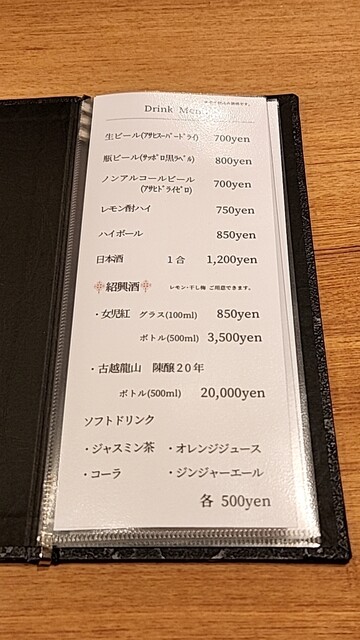 Drink Men
生ビール(ｱｻﾋｽｰﾊﾟｰﾄﾞﾗｲ) 700yen
瓶ビール(ｻｯﾎﾟﾛ黒ﾗﾍﾞﾙ) 800yen
ノンアルコールビール 700yen
(ｱｻﾋﾄﾞﾗｲｾﾞﾛ)
レモン酎ハイ 750yen
ハイボール 850yen
日本酒 1合 1,200yen
紹興酒 レモン･干し梅 ご用意できます。
・女児紅 グラス(100ml) 850yen
ボトル(500ml) 3,500yen
・古越龍山 陳醸20年
ボトル(500ml) 20,000yen
ソフトドリンク
・ジャスミン茶 ・オレンジジュース
・コーラ ・ジンジャーエール
各 500yen